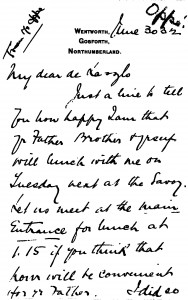 Oppe
June 30 32
WENTWORTH,
GOSFORTH,
NORTHUMBERLAND.
My dear de
Just a line to tell
You how happy I am that
yr Father Brother &
will lunch with me on
Tuesday next at the Savoy.
Let us meet at the main
Entrance for lunch at
1.15 if you think that
hour will be convenient
for yr Father. I did so